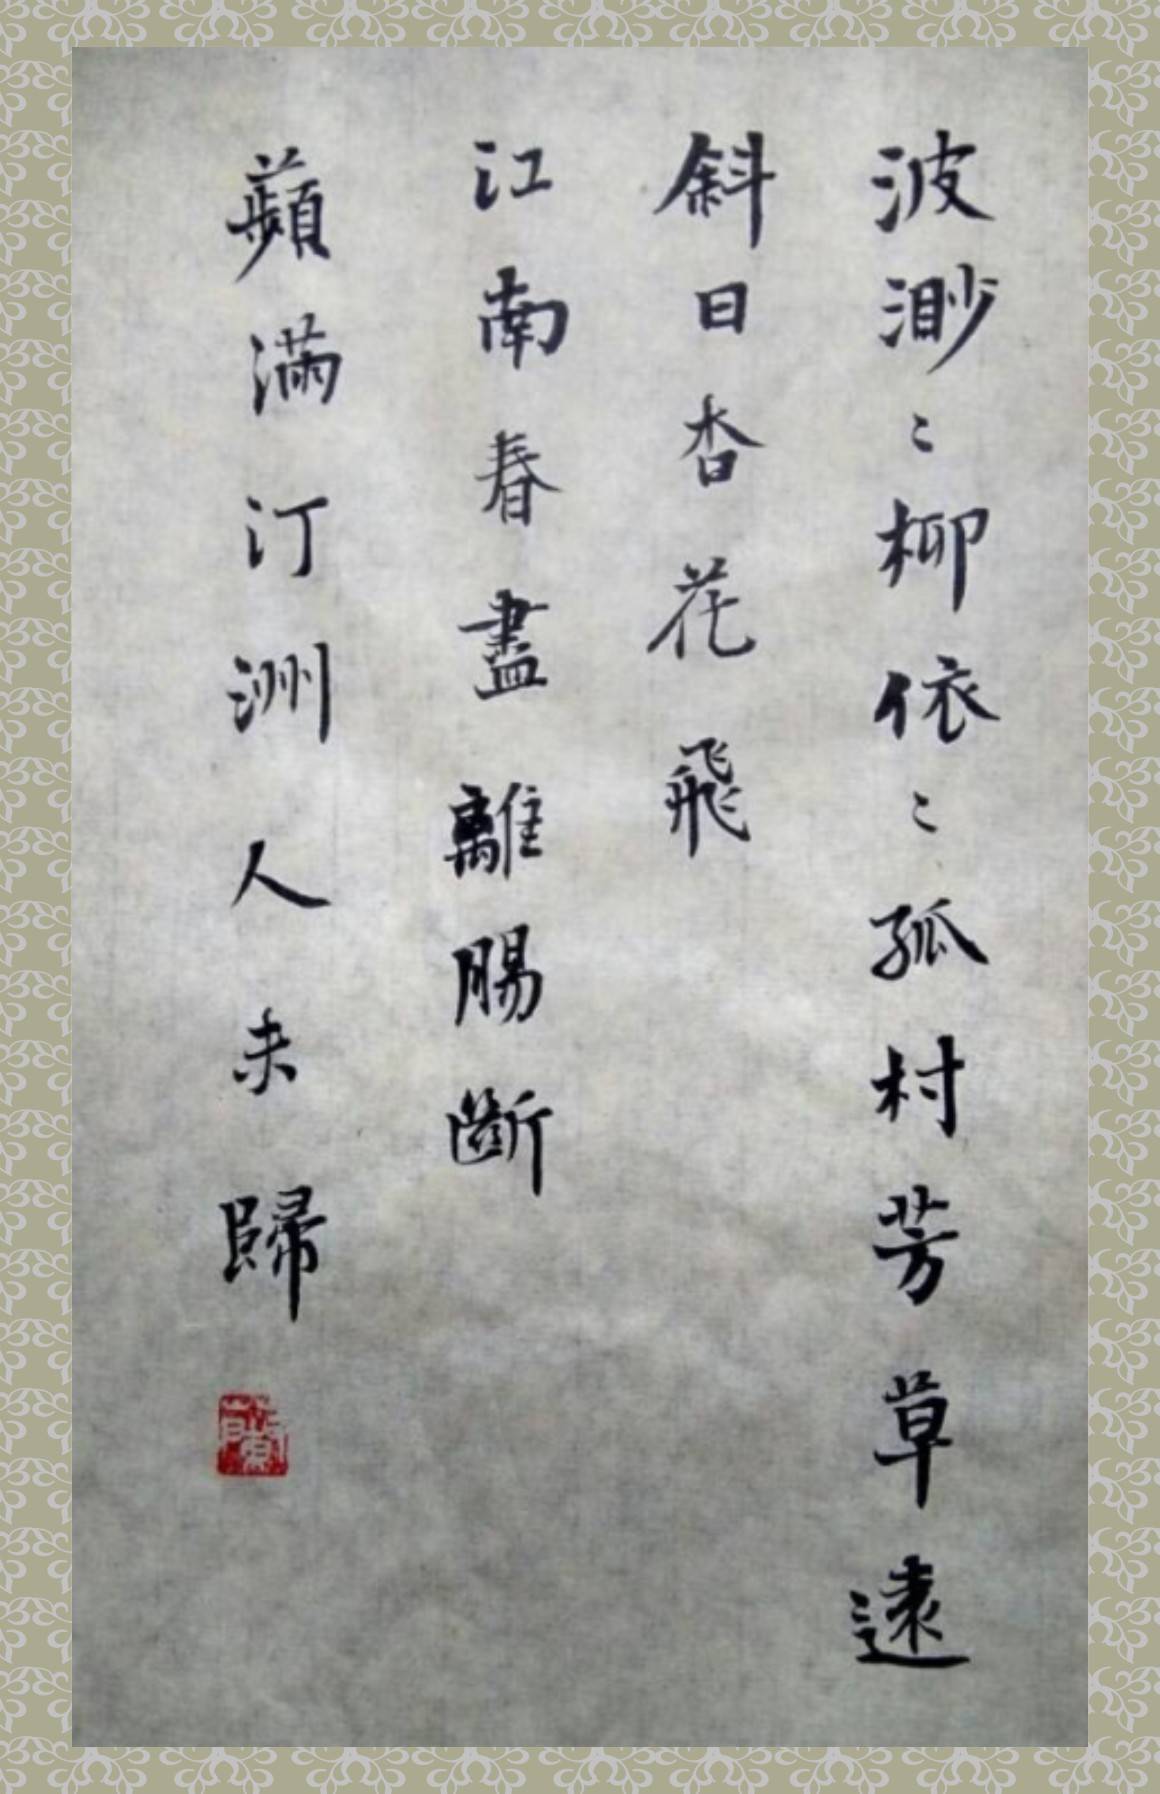 波渺〻柳依〻孤村芳草遠
斜日杏花飛
江南春盡離腸斷
蘋滿汀洲人未歸